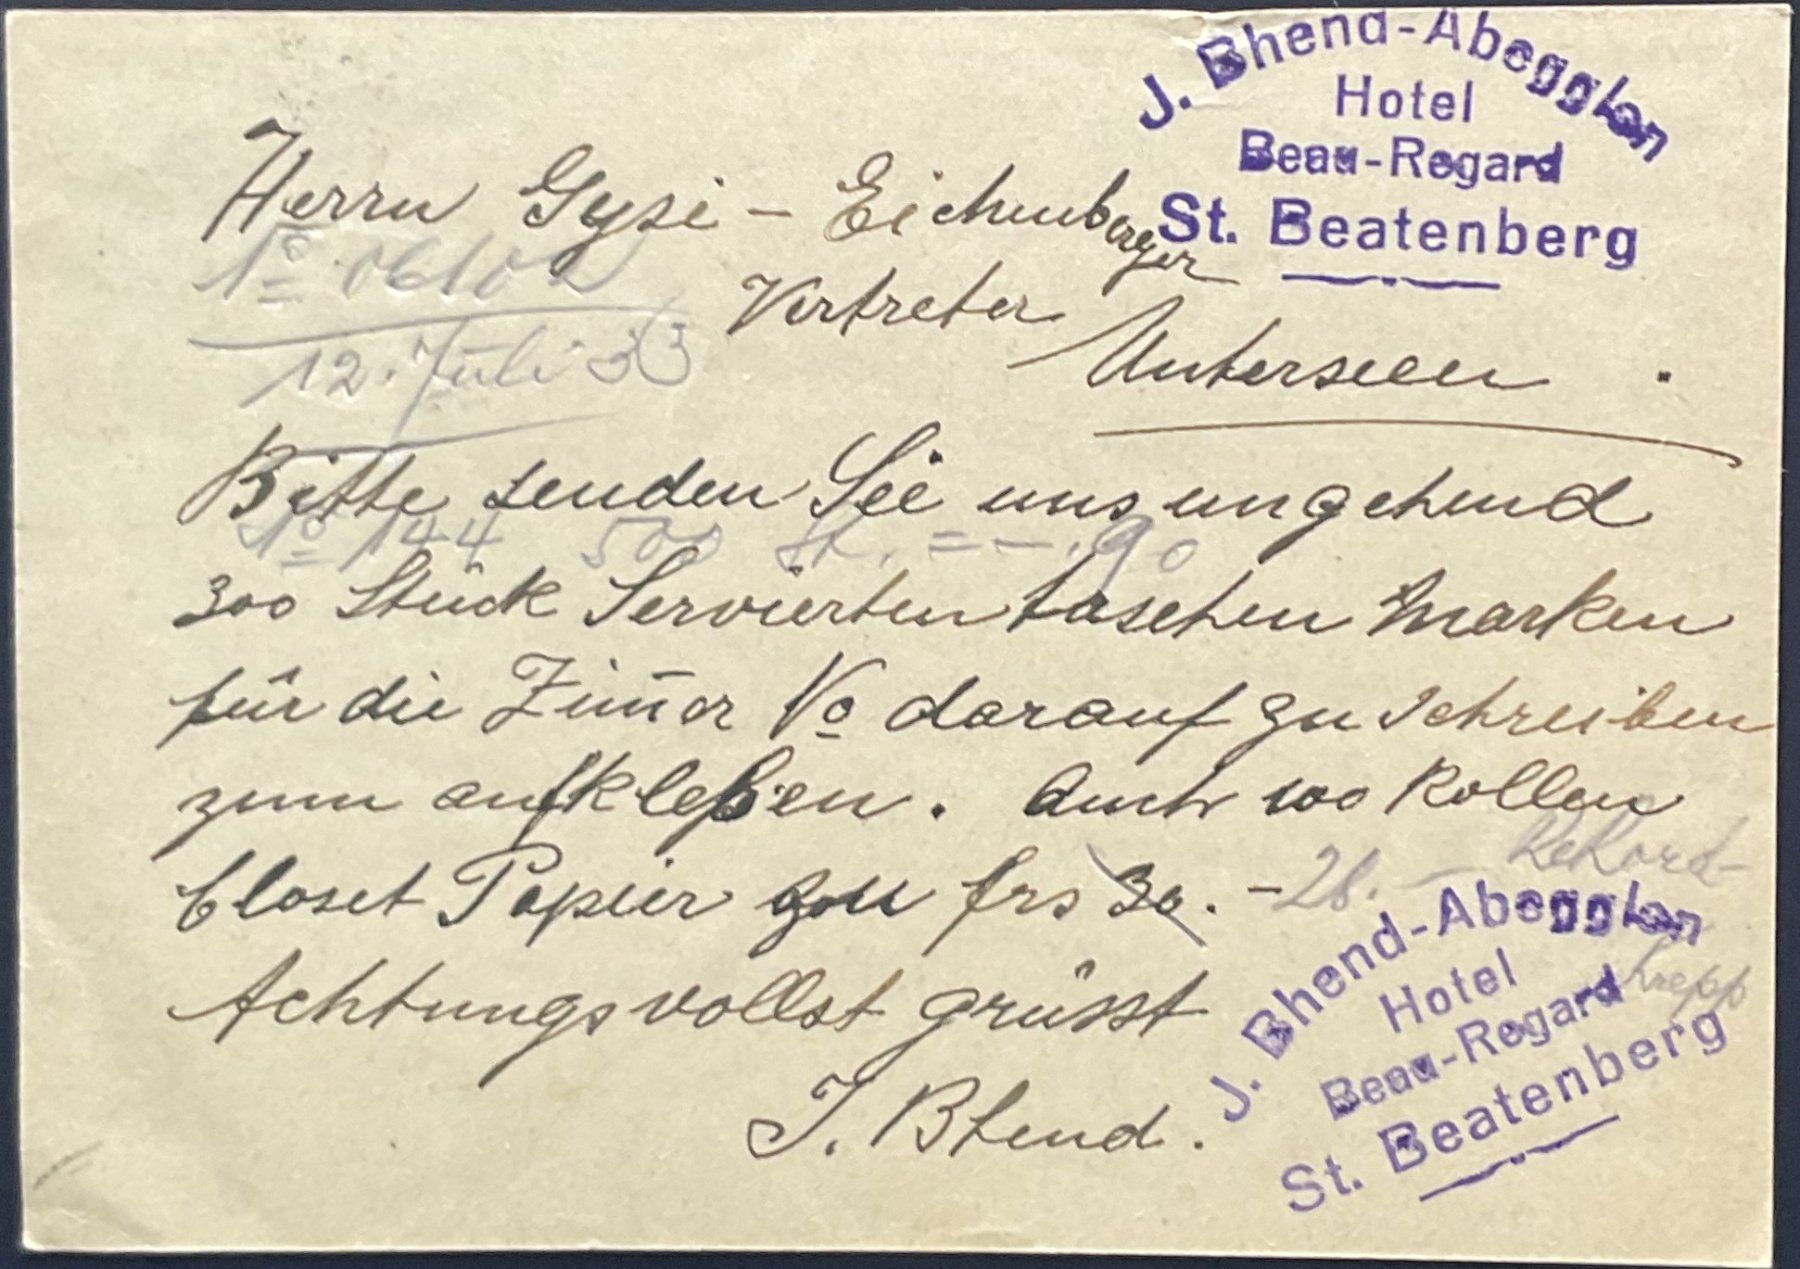 J. Bhend-Abegglen
Hotel
Beau-Regard
St. Beatenberg
Herrn Gysi - Eichenberger
Vertreter
Unterseen.
12. Juli 33
Bitte senden Sie uns umgehend
No 144 500 St. = -.90
300 Stück Servierten taschen Marken
für die Zim̄er No darauf zu schreiben
zum aufkleben. Auch 100 Rollen
Closet Papier zu frs 30.- 28.- Rekord-
Krepp
Achtungsvollst grüsst
J. Bhend.
J. Bhend-Abegglen
Hotel
Beau-Regard
St. Beatenberg